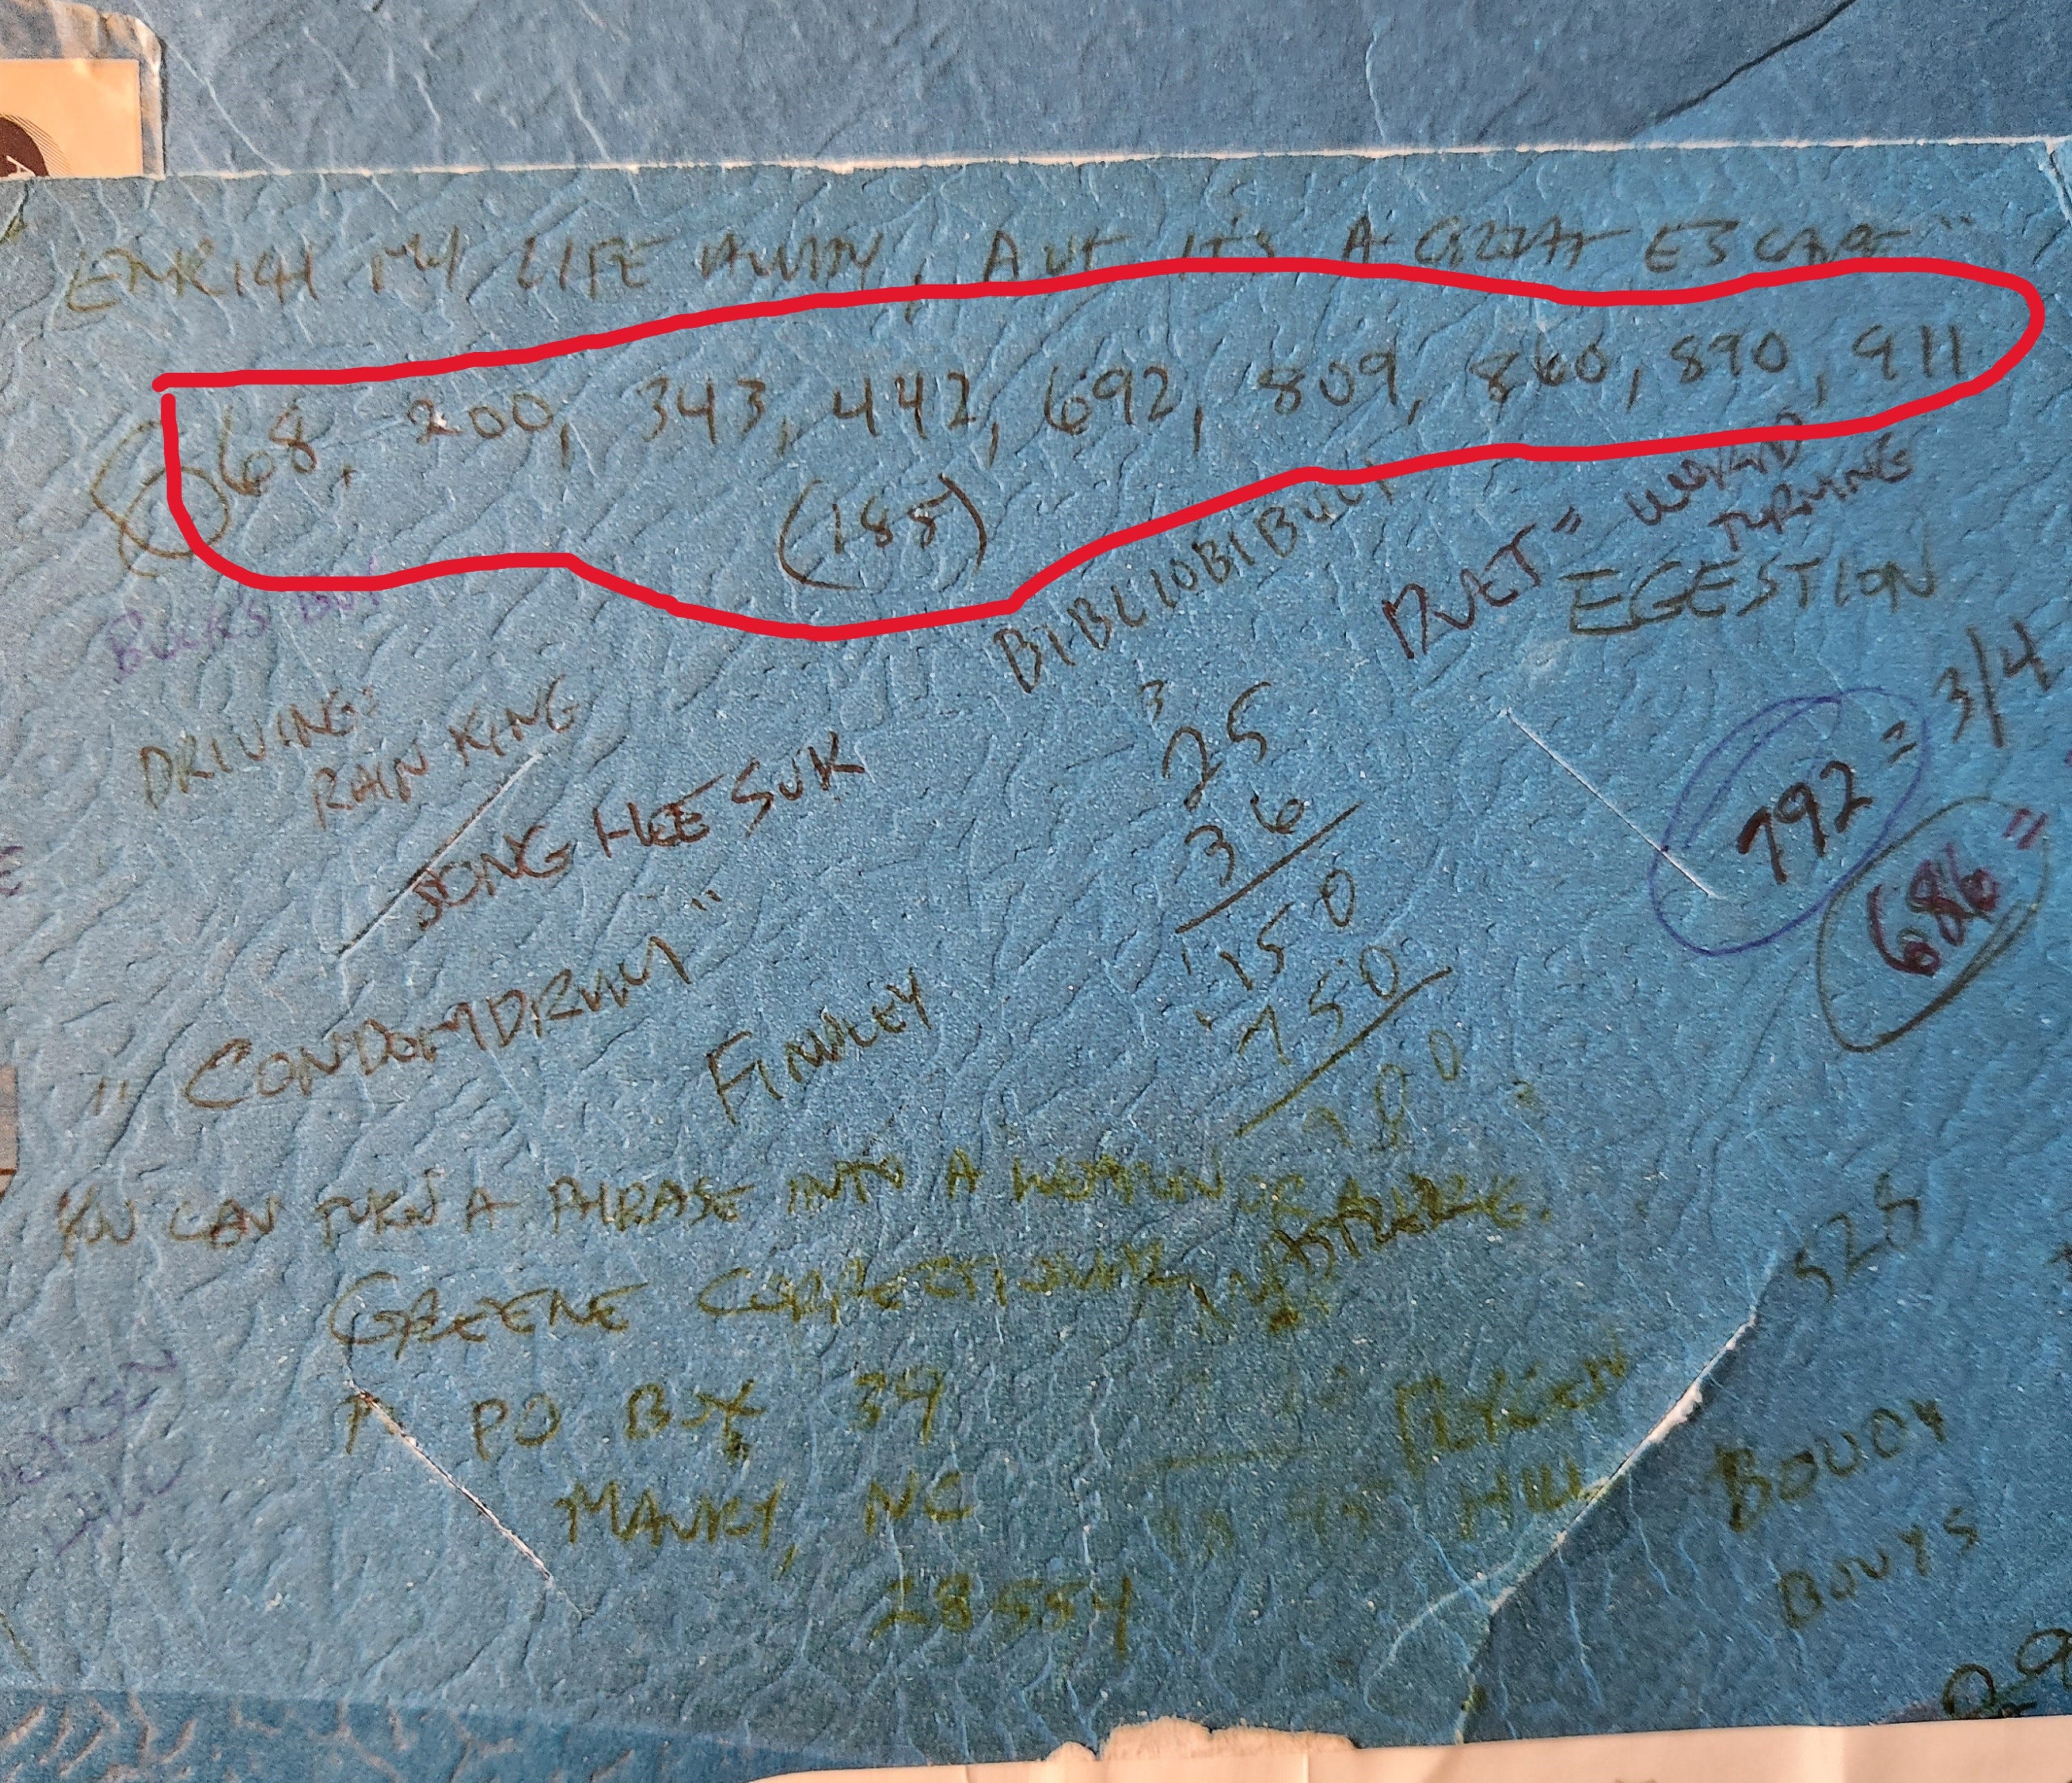 MY LIFE AWAY, BUT IT'S A GREAT ESCAPE"
68, 200, 343, 442, 692, 809, 860, 890, 911
(188)
BIBLIOBIBULI
DUET = WORLD
TURNING
EGESTION
DRIVING:
RAIN KING
JONG HEE SUK
3
25
36
150
750
900
792 = 3/4
686 "
"CONDOMDRUM"
FINNLEY
YOU CAN TURN A PHRASE INTO A
GREENE CORRECTIONAL
PO BOX 39
MAURY, NC
28554
525
HILL
BOUCY
BOUYS